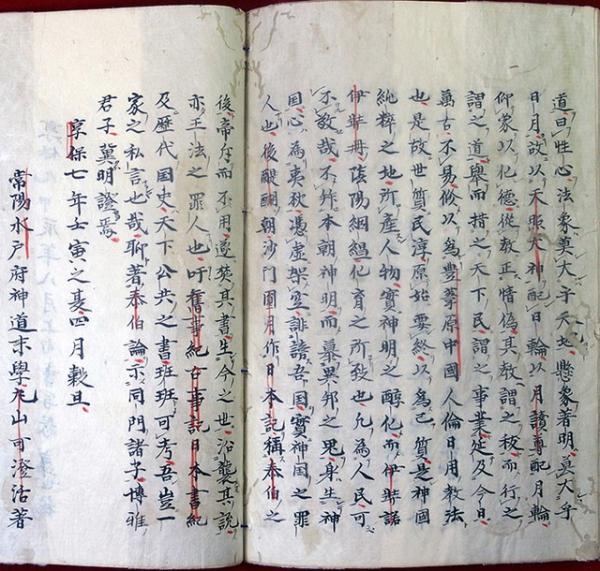 道曰性心法象莫大乎天地懸象著明莫大乎
日月故以天照大神配日輪以月讀尊配月輪
仰象以化德從教正情偽其教謂之秡而行之
謂之道舉而措之天下民謂之事業是及今日
萬古不易修以為豊葦原中國人倫日用教法
也是故世質民淳原始要終以為己質是神國
純粹之地所産人物實神明之醇化而伊弉諾
伊弉冊陰陽絪縕化育之所致也允為人民可
不敬哉不知本朝神明而慕異邦之鬼身生神
国心為夷狄憑虚架空誹謗吾国實神国之罪
人也後醍醐朝沙門圓月作日本記稱泰伯之
後帝斥而不用遂焚其書生今之世沿襲其説
亦王法之罪人也吁舊事紀古事記日本書紀
及歴代国史天下公共之書班班可考吾豈一
家之私言也哉聊著泰伯論示同門諸子博雅
君子冀明證焉
享保七年壬寅之夏四月穀旦
常陽水戸府神道末學丸山可澄活著